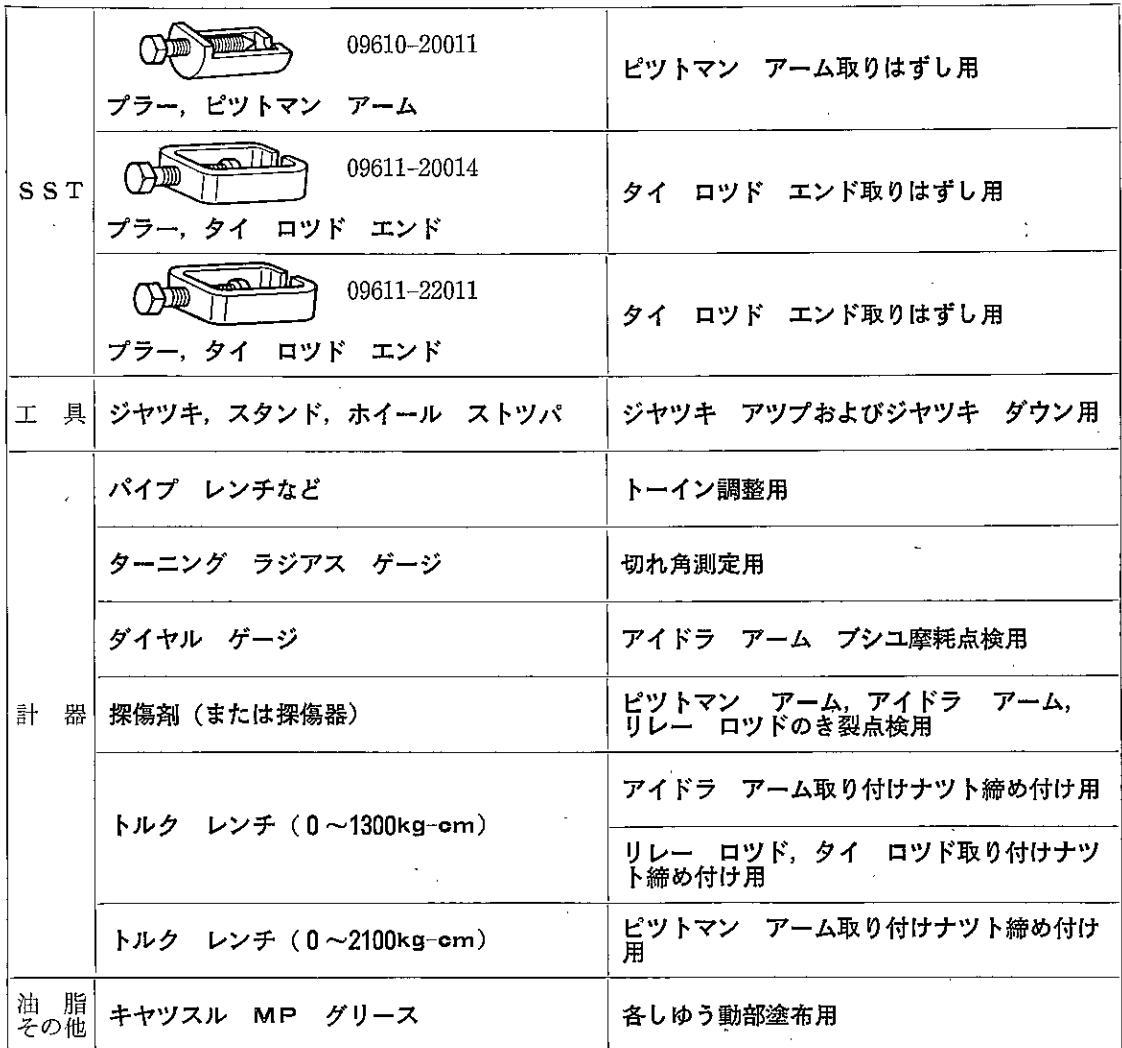 SST
09610-20011
プラー, ピツトマン アーム
ピツトマン アーム取りはずし用
09611-20014
プラー, タイ ロツド エンド
タイ ロツド エンド取りはずし用
09611-22011
プラー, タイ ロツド エンド
タイ ロツド エンド取りはずし用
工 具
ジヤツキ, スタンド, ホイール ストツパ
ジヤツキ アツプおよびジヤツキ ダウン用
計 器
パイプ レンチなど
トーイン調整用
ターニング ラジアス ゲージ
切れ角測定用
ダイヤル ゲージ
アイドラ アーム ブシユ摩耗点検用
探傷剤(または探傷器)
ピツトマン アーム, アイドラ アーム,
リレー ロツドのき裂点検用
トルク レンチ(0~1300kg-cm)
アイドラ アーム取り付けナツト締め付け用
リレー ロツド, タイ ロツド取り付けナツ
ト締め付け用
トルク レンチ(0~2100kg-cm)
ピツトマン アーム取り付けナツト締め付け
用
油 脂
その他
キヤツスル MP グリース
各しゆう動部塗布用